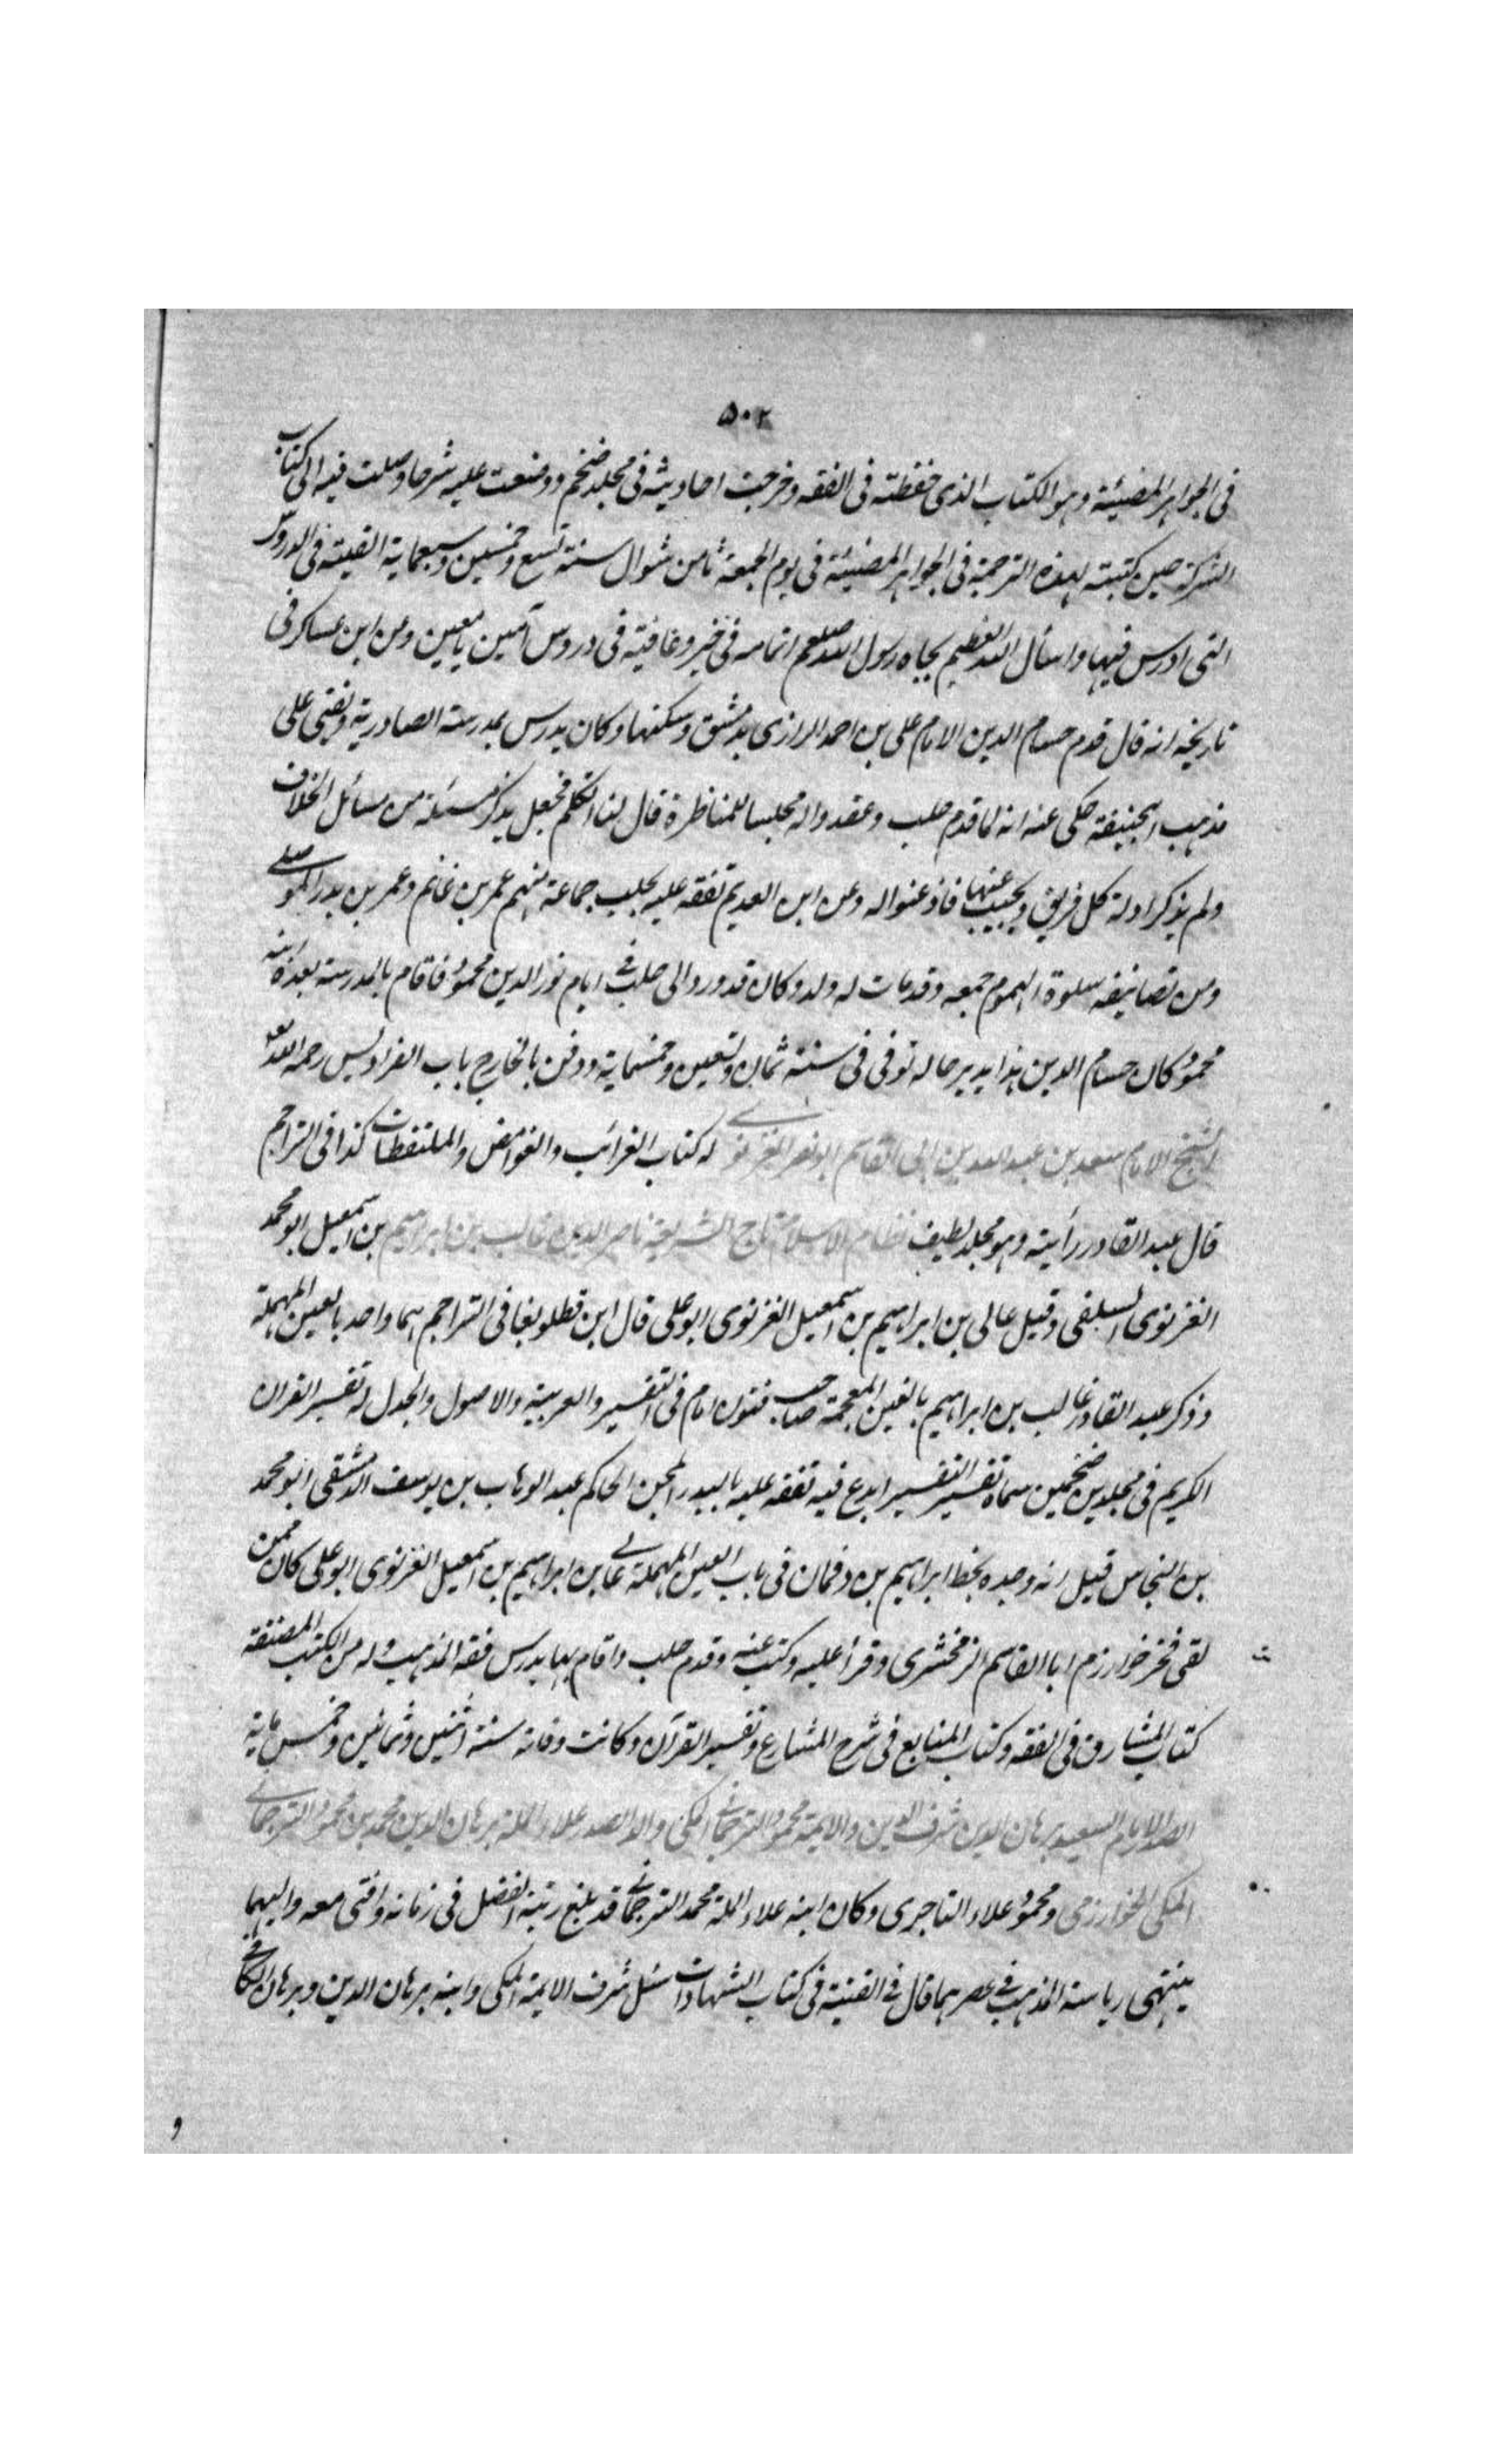 ٥٠٢
فى الجواهر المضيئة وهو الكتاب الذى حفظته فى الفقه وخرجت احاديثه فى مجلد ضخم ووضعت عليه شرحا وصلت فيه الى كتاب
الشركة حين كتبته لهذه الترجمة فى الجواهر المضيئة فى يوم الجمعة ثامن شوال سنة تسع وخمسين وسبعماية القيته فى الدروس
التى ادرس فيها واسأل الله العظيم بجاه رسول الله صلعم اتمامه فى خير وعافية فى دروس آمين يا معين ومن ابن عساكر فى
تاريخه انه قال قدم حسام الدين الامام على بن احمد الرازى بدمشق وسكنها وكان يدرس بمدرسة الصادرية ويفتى على
مذهب ابيحنيفة حكى عنه انه لما قدم حلب وعقدوا له مجلسا للمناظرة قال لنا اتكلم فجعل يذكر مسئلة من مسائل الخلاف
ولم يذكر ادلة كل فريق ويجيب عنها فاذعنوا له وعن ابن العديم تفقه عليه بحلب جماعة منهم عمر بن غانم وعمر بن بدر الموصلى
ومن تصانيفه سلوة الهموم جمعه وقد مات له ولد وكان قد ورد الى حلب فى ايام نور الدين محمود فاقام بالمدرسة بعده ابنه
محمود كان حسام الدين هذا يدبر حاله توفى فى سنة ثمان وتسعين وخمسماية ودفن بالخارج باب الفراديس رحمه الله تع
الشيخ الامام سعد بن عبد الله بن ابى القاسم ابو نصر الغزنوى له كتاب الغرائب والغوامض والملتقطات كذا فى التراجم
قال عبد القادر رأيته وهو مجلد لطيف نظام الاسلام تاج الشريعة ناصر الدين غالب بن ابراهيم بن اسمعيل ابو محمد
الغزنوى السلفى وقيل عالى بن ابراهيم بن اسمعيل الغزنوى ابو على قال ابن قطلوبغا فى التراجم اسما واحد بالعين المهملة
وذكر عبد القادر غالب بن ابراهيم بالغين المعجمة صاحب فنون امام فى التفسير والعربية والاصول والجدل له تفسير القران
الكريم فى مجلدين ضخمين سماه تفسير التفسير ابدع فيه تفقه عليه بالبدر المجن الحاكم عبد الوهاب بن يوسف الدمشقى ابو محمد
بن النجاس قيل انه وجده بخط ابراهيم بن دقمان فى باب العين المهملة عالى بن ابراهيم بن اسمعيل الغزنوى ابو على كان ممن
لقى فخر خوارزم ابا القاسم الزمخشرى وقرأ عليه وكتب عنه وقدم حلب واقام بها يدرس فقه المذهب وله من الكتب المصنفة
كتاب المشارق فى الفقه وكتاب المنابع فى شرح المشارع وتفسير القرآن وكانت وفاته سنة اثنين وثمانين وخمس ماية
الصدر الامام السعيد برهان الدين شرف الدين والايمة محمود الترجمانى المكى والد الصدر علاء الملة برهان الدين محمد بن محمود الترجمانى
المكى الخوارزمى ومحمود علاء التاجرى وكان ابنه علاء الملة محمد الترجمانى قد بلغ رتبة الفضل فى زمانه وافتى معه واليهما
ينتهى رياسة المذهب فى عصرهما قال فى القنية فى كتاب الشهادات سئل شرف الايمة المكى وابنه برهان الدين وبرهان الكافى
و